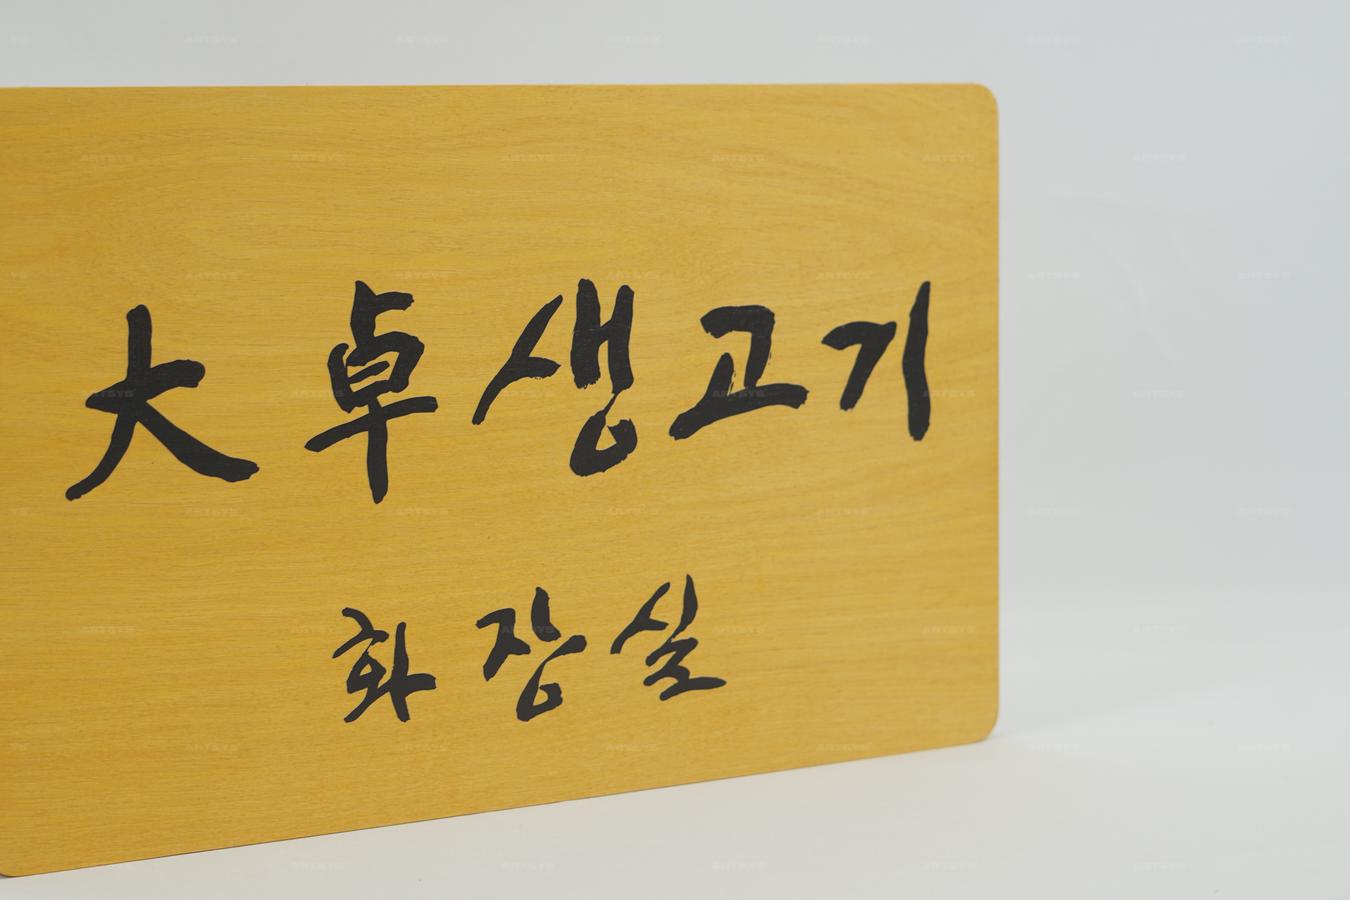 大卓생고기
화장실